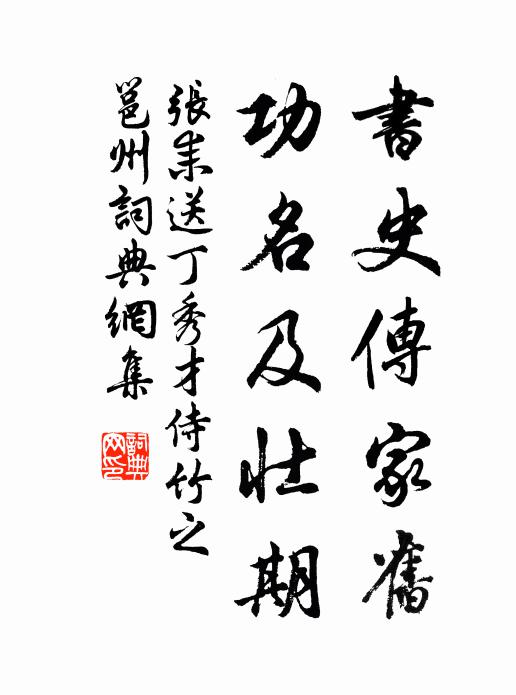 書史傳家舊
功名及壯期
張耒送丁秀才侍竹之
邕州詞典網集
詞典網印